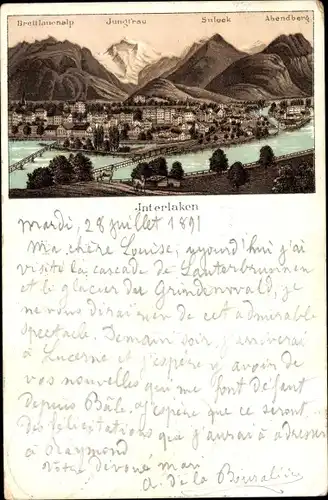 Breitlauenalp Jungfrau Suleck Abendberg
Interlaken
Mardi, 28 juillet 1891
Ma chère Louise, aujourd'hui j'ai
visité la cascade de Lauterbrunnen
et le glacier du Grindenwald, je
ne vous dirai rien de cet admirable
spectacle. Demain soir, j'arriverai
à Lucerne et j'espère y avoir de
vos nouvelles qui me font défaut
depuis Bâle. J'espère que ce seront
des félicitations que j'aurai à adresser
à Raymond
Votre dévoué mari
A. de la